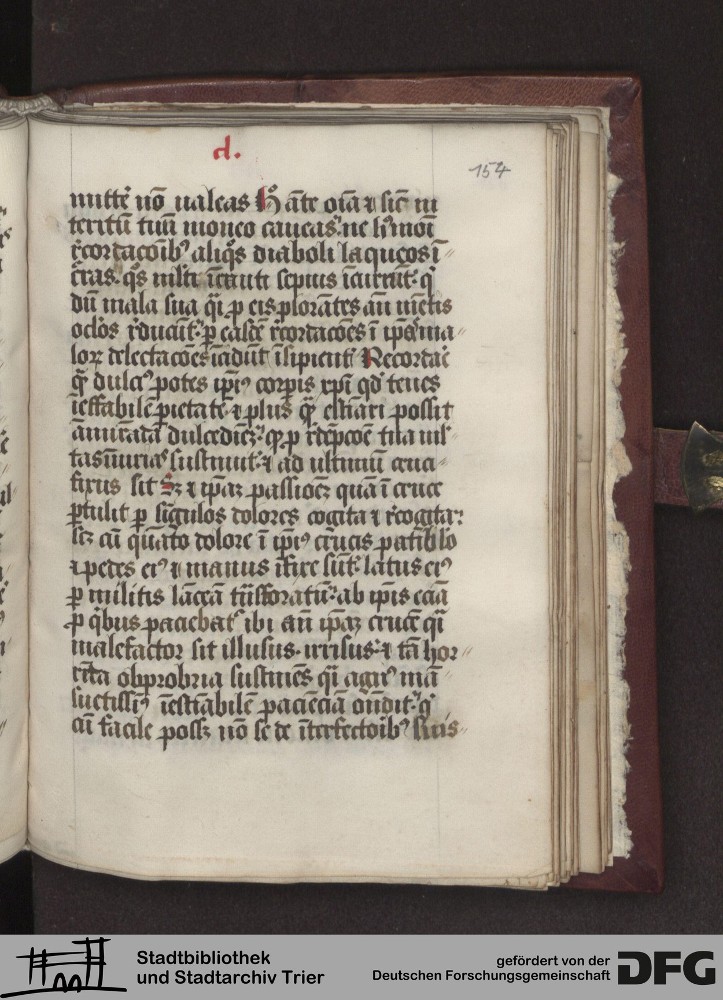 d.
154
mittē nō ualeas h̄ āte oīa ⁊ sic̄ in
teritū tuū moneo caueas. ne hmōi
r̄cordacōib⁹ aliqⁱs diaboli laqueos ī
dū mala sua qͣi ꝑ eis plorātes aū mētis
oclōs r̄ducūt. ꝑ easdē r̄cordacōes ī ip̄a ma
loꝝ delectacōes īcidūt īsipienti Recordaē
qͣ dulcⁱ potes ip̄i⁹ corꝑis xp̄i qd̓ tenes
ieffabilē pietatē ⁊ plus qͣ estīari possit
ꝑ r̄dēpcōe tua ml̓
tas iniurias sustinuit ⁊ ad ultimū cruci
fixus sit Sꝫ ⁊ ip̄aꝫ passionē quā ī cruce
ꝑtulit ꝑ sīgulos dolores cogita ⁊ r̄cogita:
sꝫ cū quāto dolore ī ip̄i⁹ crucis patibllo
⁊ pedes ei⁹ ⁊ manus ifixe sūt. latus ei⁹
ꝑ militis lāceā trāsforatū. ab ip̄is eciā
ꝓ qⁱbus paciebat᷑ ibi aū ip̄aꝫ crucē qͣi
malefactor sit illusus. irrisus. ⁊ tā hor
rēda obprobria sustinēs qͣi agn⁹ mā
suetissi⁹ iestīabilē paciēciā ondit. qⁱ
cū facile possꝫ nō se de īterfectoib⁹ suis
Stadtbibliothek
und Stadtarchiv Trier
gefördert von der
Deutschen Forschungsgemeinschaft
DFG